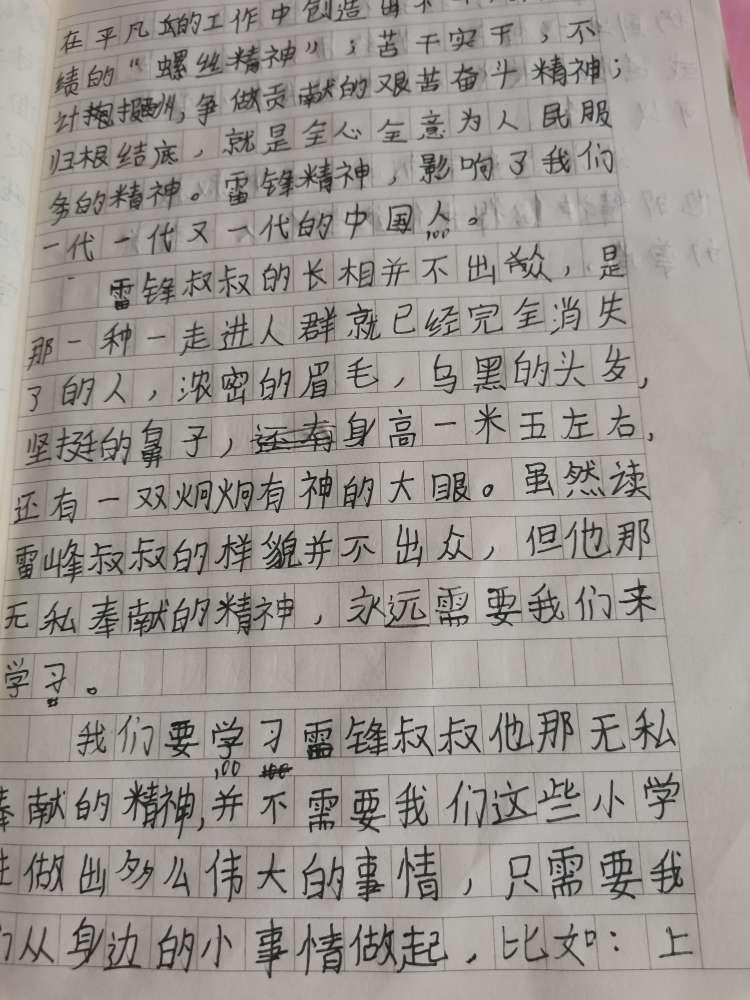 在平凡的工作中创造出不
绩的“螺丝精神”；苦干实干，不
计报酬，争做贡献的艰苦奋斗精神；
归根结底，就是全心全意为人民服
务的精神。雷锋精神，影响了我们
一代一代又一代的中国人。
100
雷锋叔叔的长相并不出众，是
那一种一走进人群就已经完全消失
了的人，浓密的眉毛，乌黑的头发，
坚挺的鼻子，身高一米五左右，
还有一双炯炯有神的大眼。虽然读
雷峰叔叔的样貌并不出众，但他那
无私奉献的精神，永远需要我们来
学习。
我们要学习雷锋叔叔他那无私
100
奉献的精神，并不需要我们这些小学
生做出多么伟大的事情，只需要我
们从身边的小事情做起，比如：上